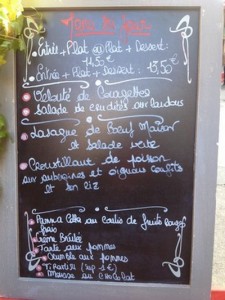 Menu du Jour
Entrée + Plat ou Plat + Dessert :
Entrée + Plat + Dessert : 15,50€
Velouté de Courgettes
Salade de crudités
Lasagne de Bœuf Maison
et salade verte
Croustillant de poisson
sur aubergines et oignons confits
et son riz
Panna Cotta au Coulis de fruits rouges
Crème Brûlée
Tarte aux pommes
Crumble aux pommes
Tiramisu
Mousse au Chocolat